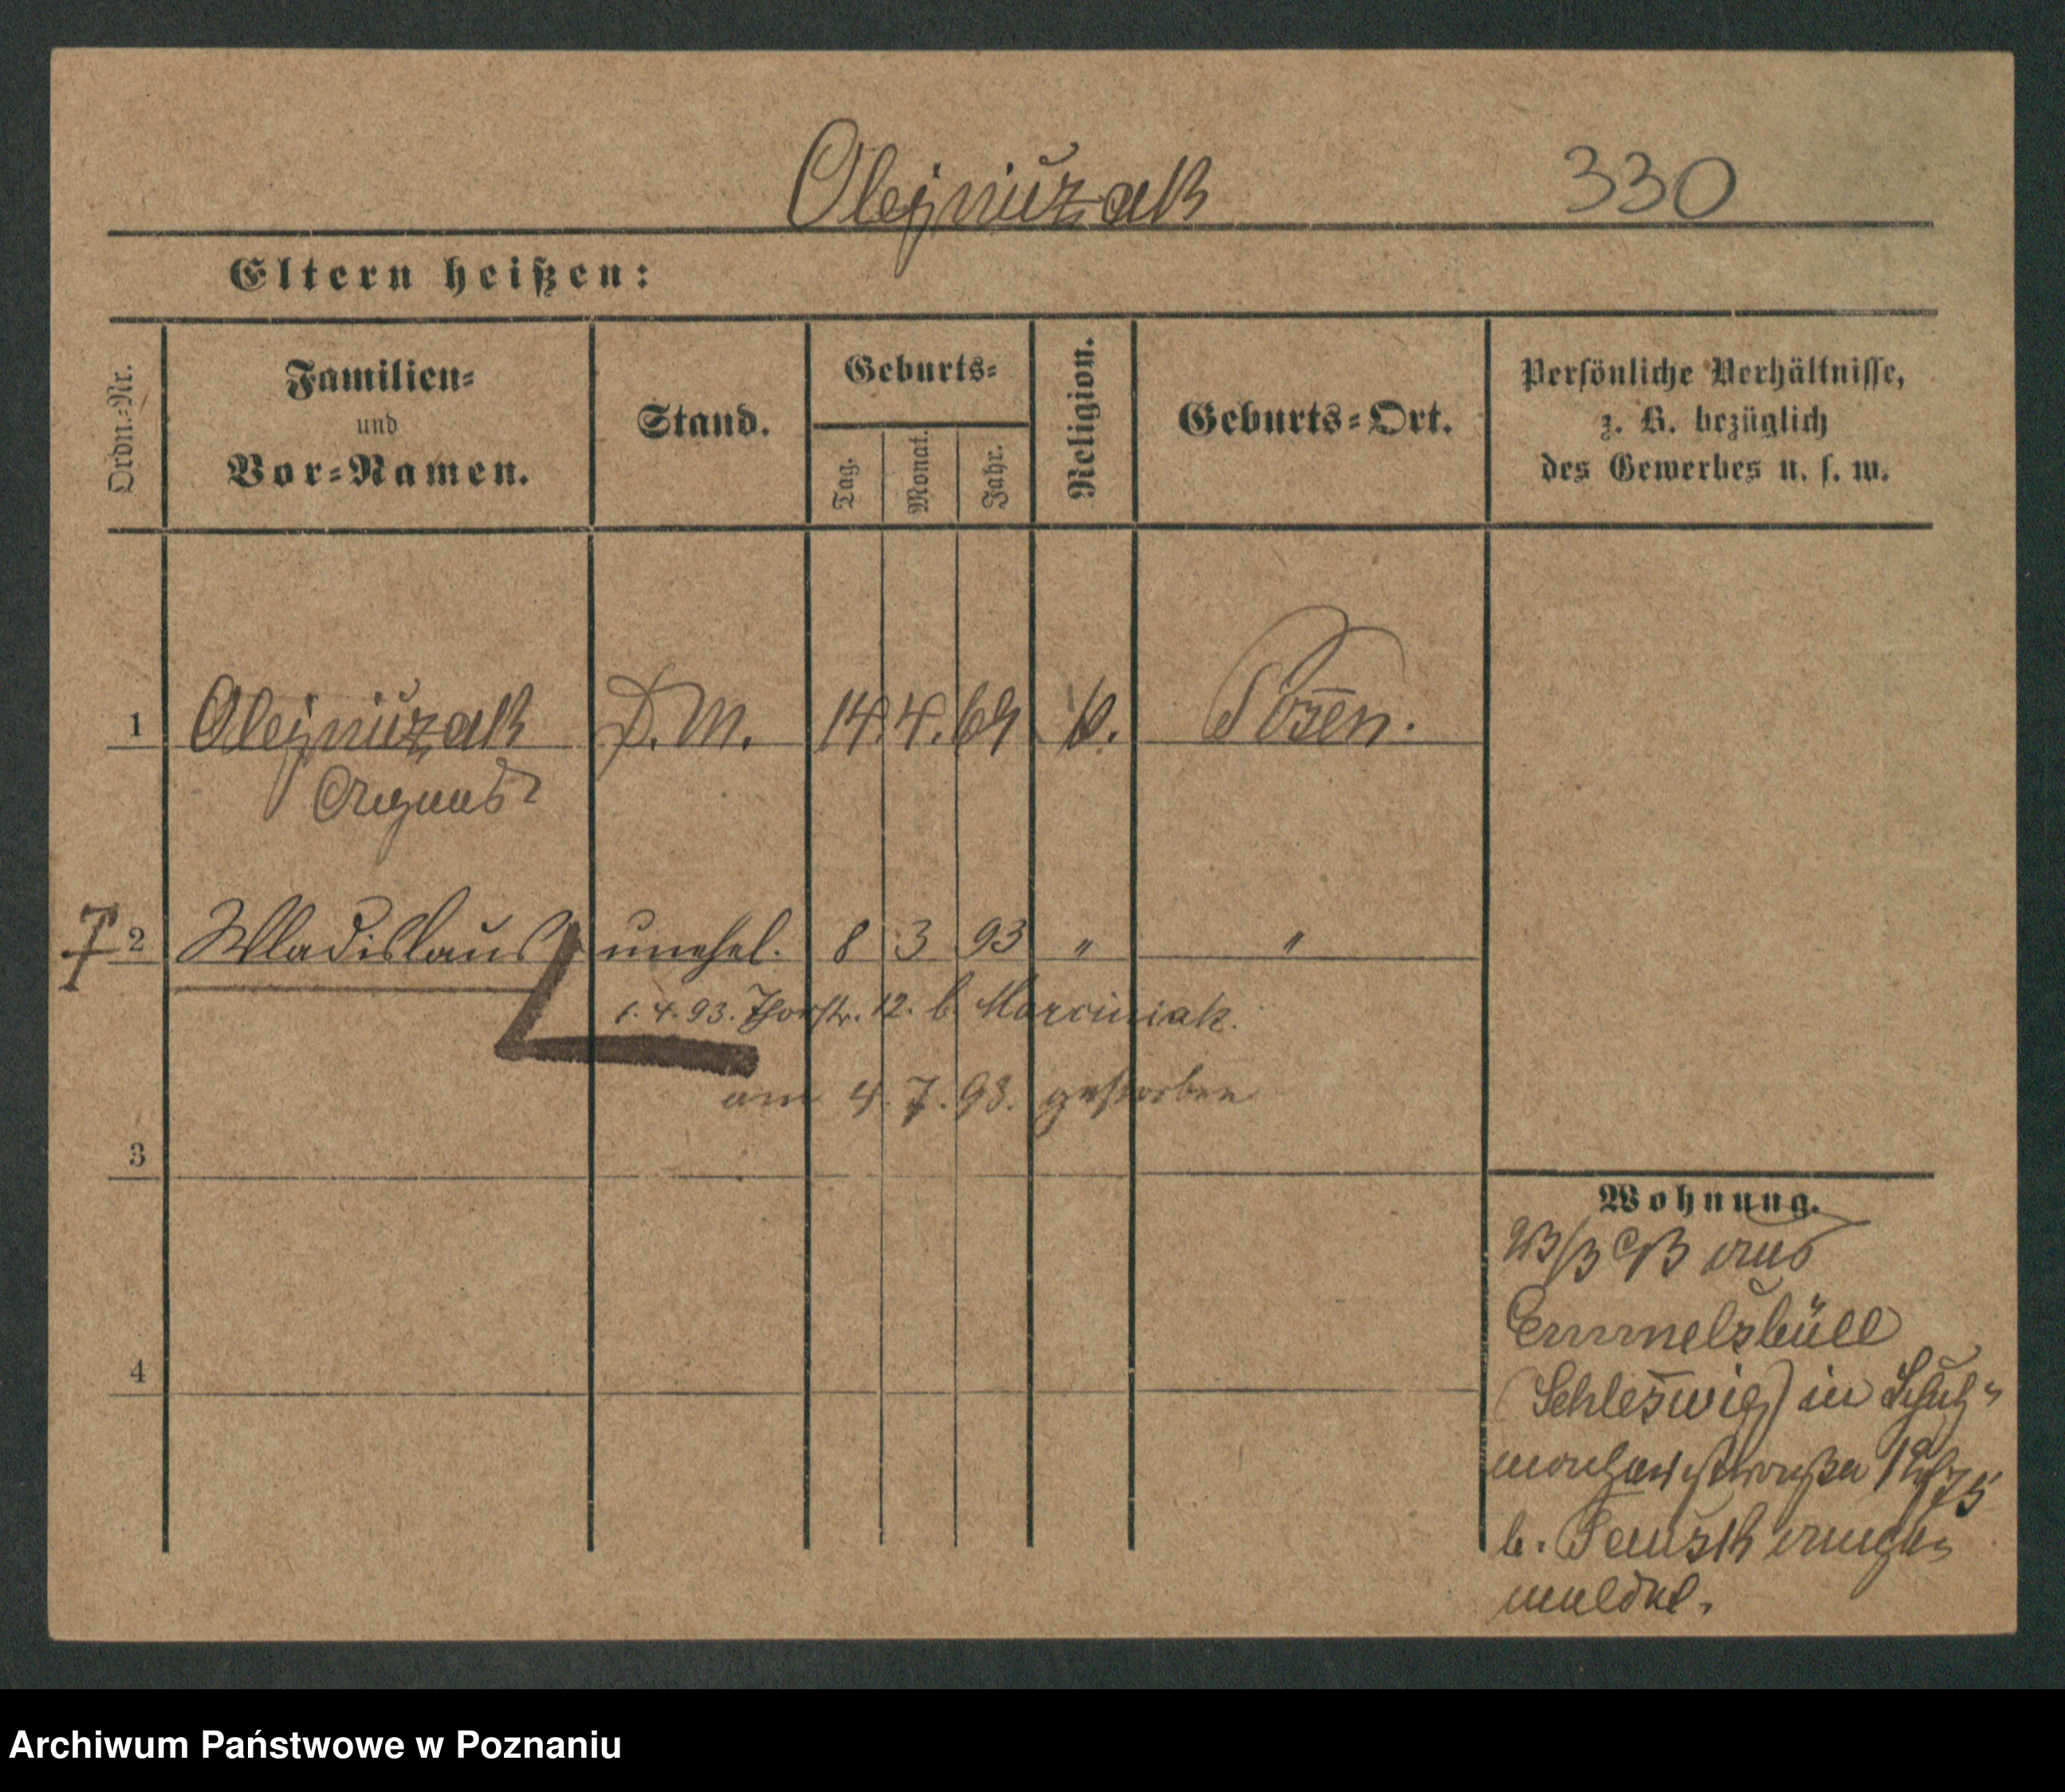 Olejniczak 330
Eltern heißen:
Ordn.-Nr.
Familien-
und
Vor-Namen.
Stand.
Geburts-
Tag.
Monat.
Jahr.
Religion.
Geburts-Ort.
Persönliche Verhältnisse,
z. B. bezüglich
des Gewerbes u. s. w.
1 Olejniczak D.M. 14. 4. 69 k. Posen.
Agnes
2 Wladislaus unehel. 8 3 93 " "
1. 4. 93. Thorstr. 12. b. Marciniak.
am 4. 7. 93. gestorben
3
4
Wohnung.
aus
Emmelsbüll
(Schleswig) in Schuh-
macherstraße
b. ange-
meldet.
Archiwum Państwowe w Poznaniu